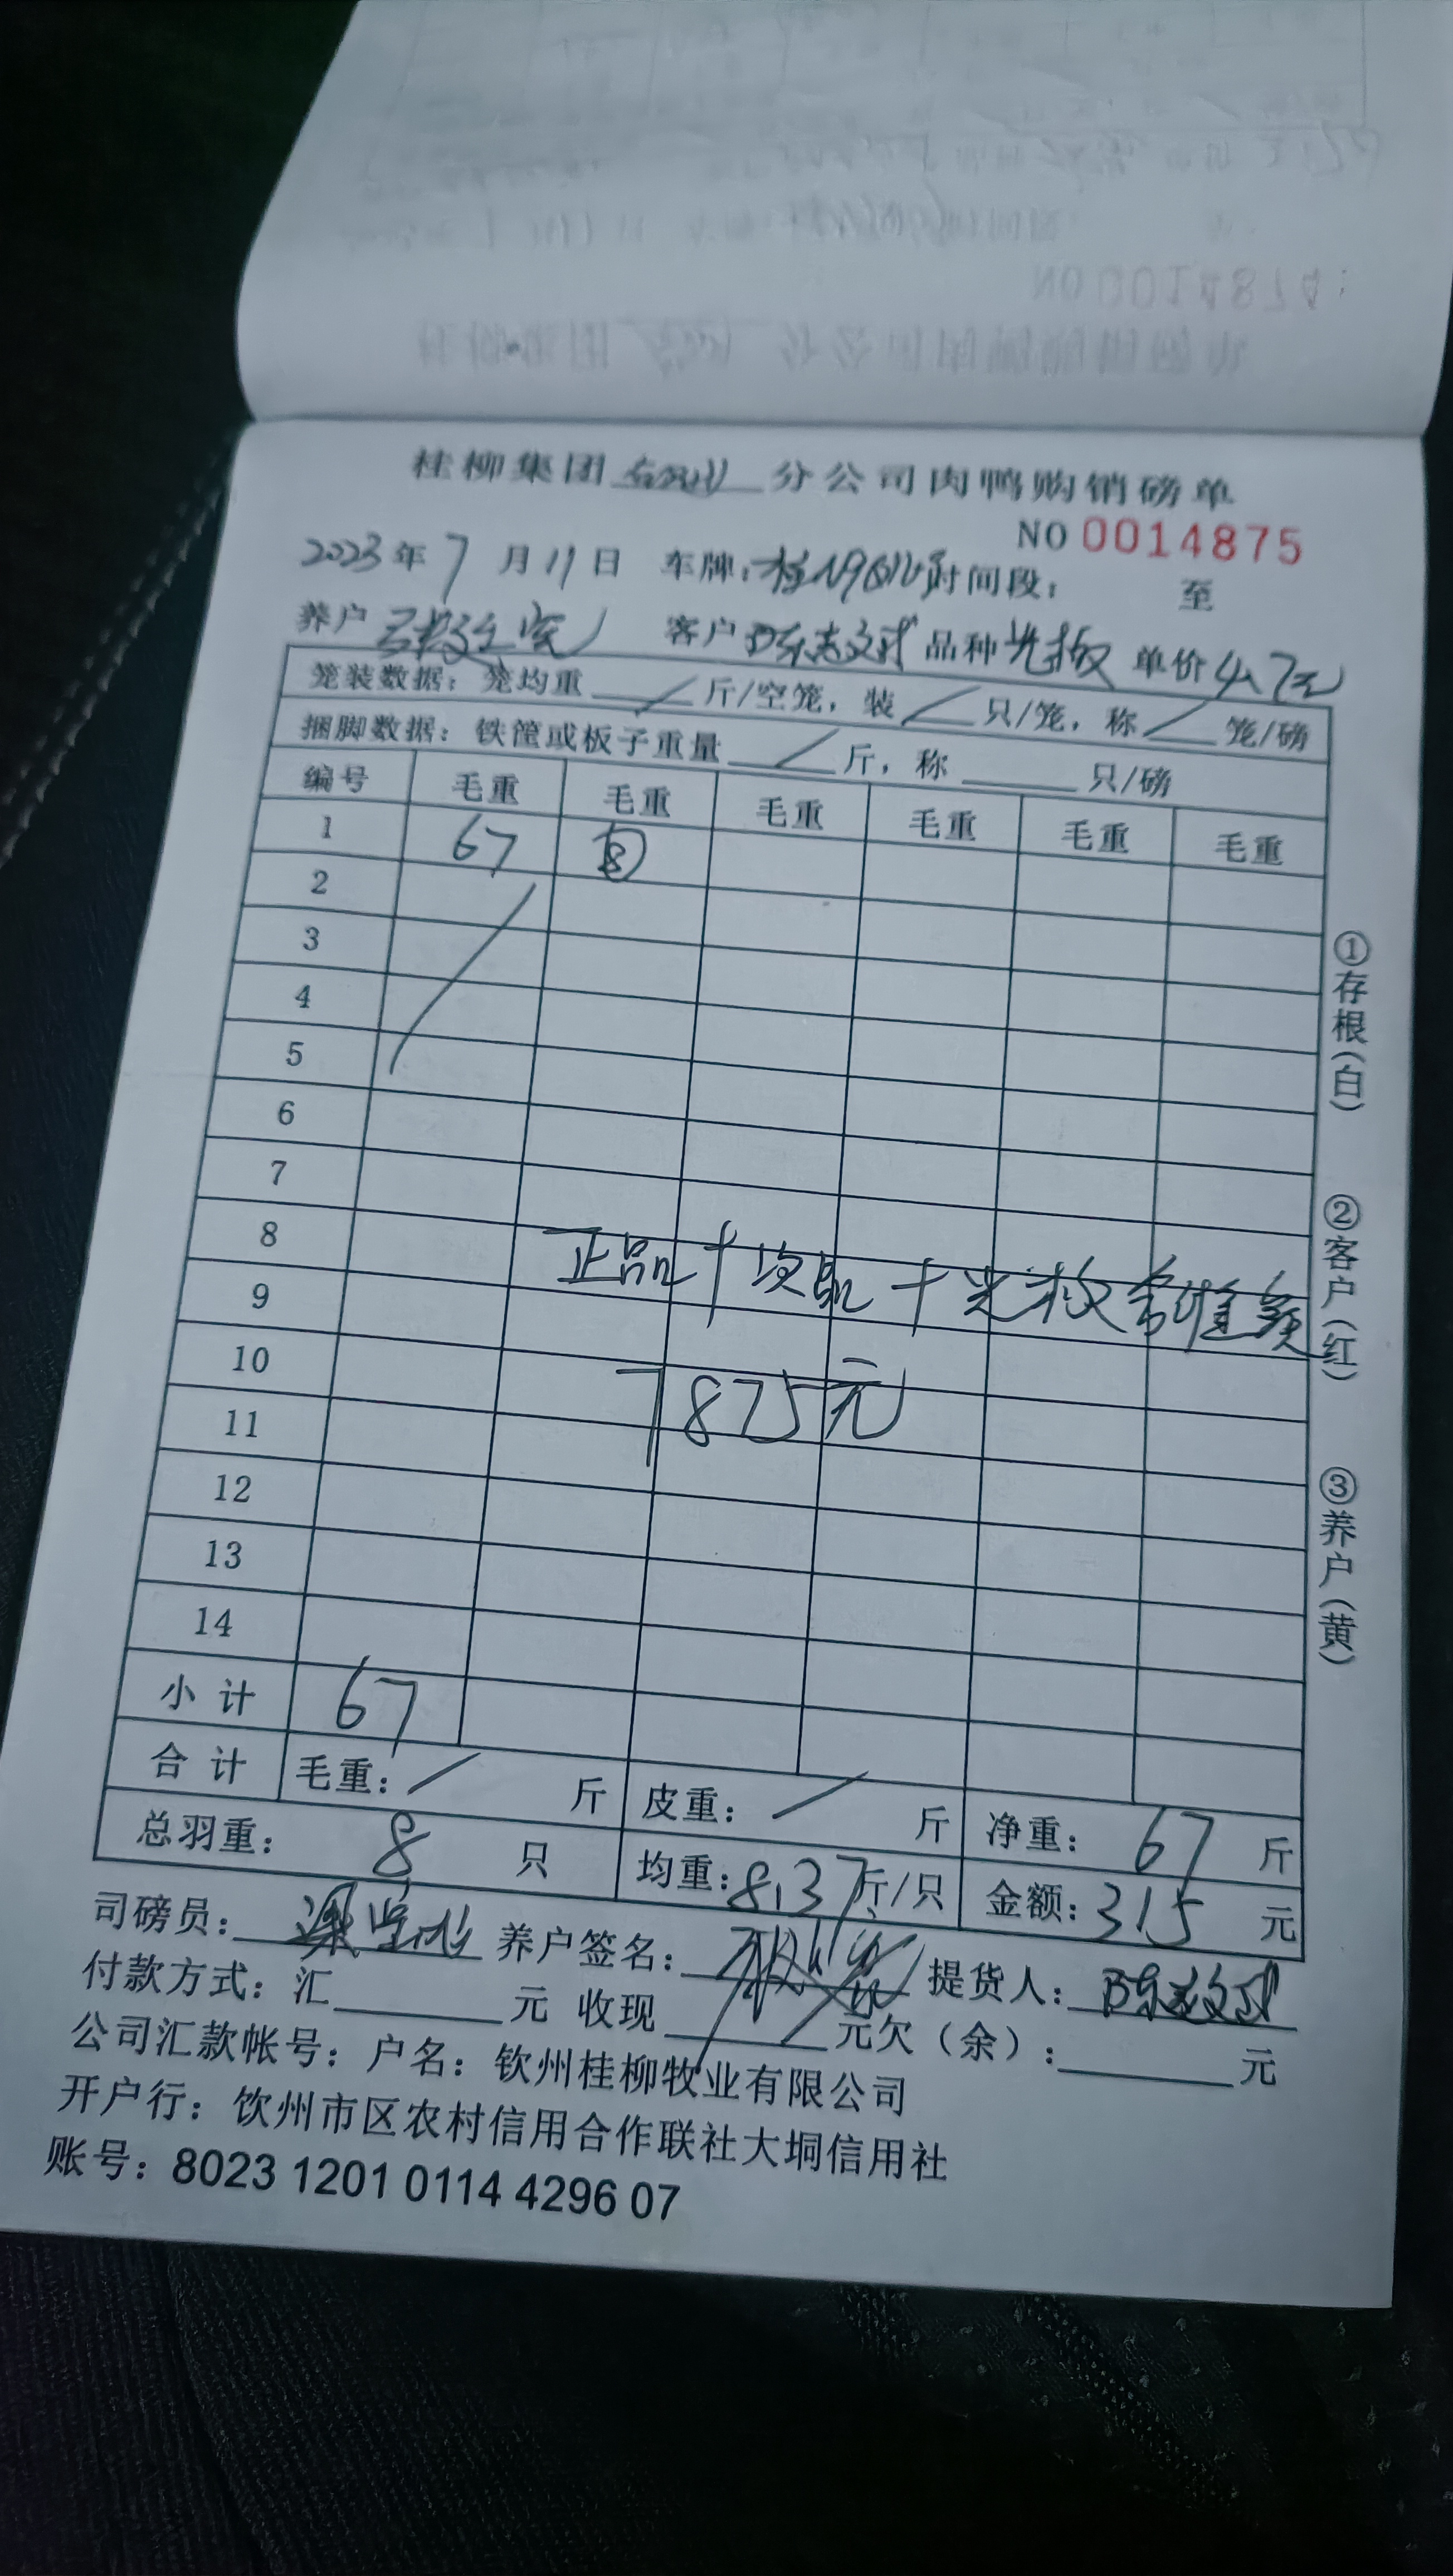 桂柳集团 分公司肉鸭购销磅单
NO 0014875
2023年7月11日 车牌: 时间段: 至
养户 客户 陈志文 品种 光板 单价 4.7元
笼装数据: 笼均重 / 斤/空笼, 装 / 只/笼, 称 / 笼/磅
捆脚数据: 铁筐或板子重量 / 斤, 称 只/磅
编号 毛重 毛重 毛重 毛重 毛重 毛重
1 67 ⑧
2
3
4
5
6
7
8
正品十次品十光板
9
10
7875元
11
12
13
14
小计 67
合计 毛重: / 斤 皮重: / 斤 净重: 67 斤
总羽重: 8 只 均重: 8.37斤/只 金额: 315 元
司磅员: 养户签名: 提货人: 陈志文
付款方式: 汇 元 收现 元欠(余): 元
公司汇款帐号: 户名: 钦州桂柳牧业有限公司
开户行: 钦州市区农村信用合作联社大垌信用社
账号: 8023 1201 0114 4296 07
①存根(白)
②客户(红)
③养户(黄)
NO 0014874